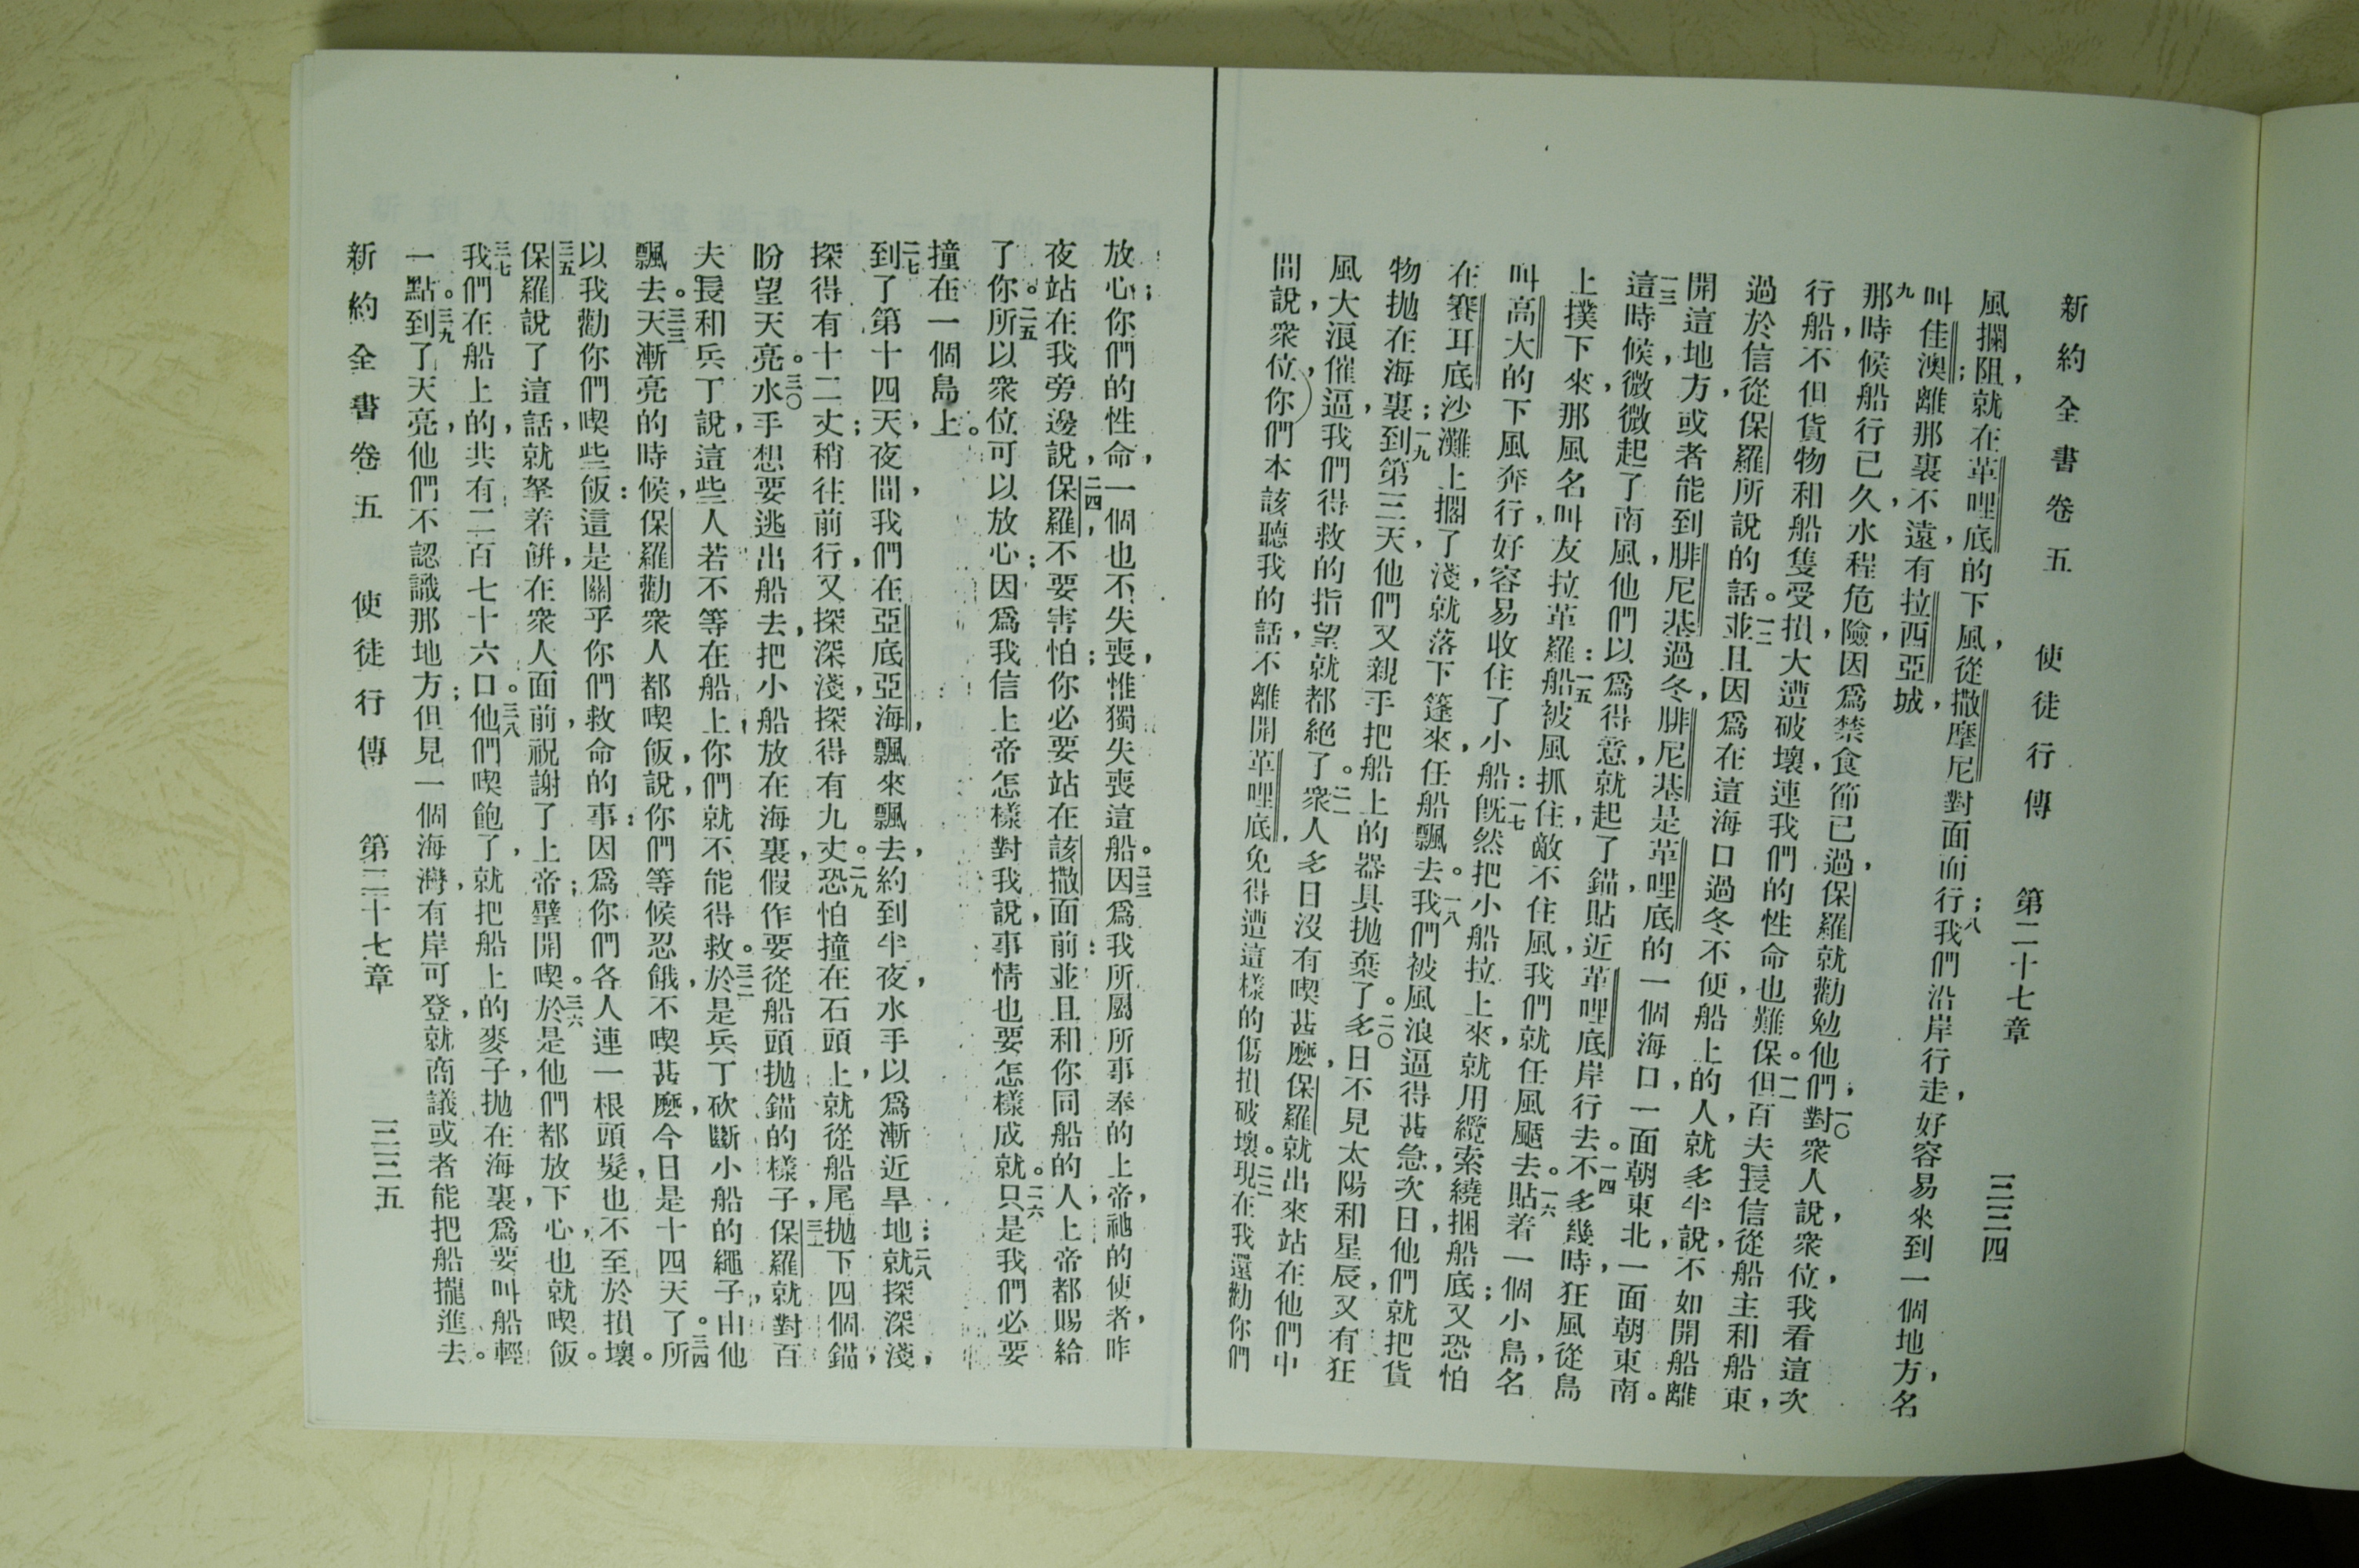 新約全書卷五　使徒行傳　第二十七章　三三四
風攔阻，就在革哩底的下風，從撒摩尼對面而行；八我們沿岸行走，好容易來到一個地方，名
叫佳澳；離那裏不遠，有拉西亞城，
九那時候，船行已久，水程危險，因爲禁食節已過，保羅就勸勉他們；一〇對衆人說，衆位，我看這次
行船，不但貨物和船隻受損，大遭破壞，連我們的性命也難保。一一但百夫長信從船主和船東，
過於信從保羅所說的話。一二並且因爲在這海口過冬不便，船上的人就多半說，不如開船離
開這地方，或者能到腓尼基過冬，腓尼基是革哩底的一個海口，一面朝東北，一面朝東南。
一三這時候，微微起了南風，他們以爲得意，就起了錨，貼近革哩底岸行去。一四不多幾時，狂風從島
上撲下來，那風名叫友拉革羅：一五船被風抓住，敵不住風，我們就任風颳去。一六貼着一個小島，名
叫高大的下風奔行，好容易收住了小船：一七既然把小船拉上來，就用纜索繞捆船底；又恐怕
在賽耳底沙灘上擱了淺，就落下篷來，任船飄去。一八我們被風浪逼得甚急，次日他們就把貨
物抛在海裏；一九到第三天，他們又親手把船上的器具抛棄了。二〇多日不見太陽和星辰，又有狂
風大浪催逼，我們得救的指望就都絕了。二一衆人多日沒有喫甚麼，保羅就出來站在他們中
間說，衆位，你們本該聽我的話，不離開革哩底，免得遭這樣的傷損破壞。二二現在我還勸你們
放心；你們的性命，一個也不失喪，惟獨失喪這船。二三因爲我所屬所事奉的上帝，祂的使者，昨
夜站在我旁邊說，二四保羅，不要害怕；你必要站在該撒面前：並且和你同船的人，上帝都賜給
了你。二五所以衆位可以放心；因爲我信上帝怎樣對我說，事情也要怎樣成就。二六只是我們必要
撞在一個島上。
二七到了第十四天，夜間，我們在亞底亞海，飄來飄去，約到半夜，水手以爲漸近旱地；二八就探深淺，
探得有十二丈；稍往前行，又探深淺，探得有九丈。二九恐怕撞在石頭上，就從船尾抛下四個錨，
盼望天亮。三〇水手想要逃出船去，把小船放在海裏，假作要從船頭抛錨的樣子，三一保羅就對百
夫長和兵丁說，這些人若不等在船上，你們就不能得救。三二於是兵丁砍斷小船的繩子，由他
飄去。三三天漸亮的時候，保羅勸衆人都喫飯，說，你們等候忍餓，不喫甚麼，今日是十四天了。三四所
以我勸你們喫些飯：這是關乎你們救命的事：因爲你們各人連一根頭髮，也不至於損壞。
三五保羅說了這話，就拏着餅，在衆人面前，祝謝了上帝；擘開喫。三六於是他們都放下心，也就喫飯。
三七我們在船上的，共有二百七十六口。三八他們喫飽了，就把船上的麥子，抛在海裏，爲要叫船輕
一點。三九到了天亮，他們不認識那地方；但見一個海灣，有岸可登，就商議或者能把船攏進去。
新約全書卷五　使徒行傳　第二十七章　三三五